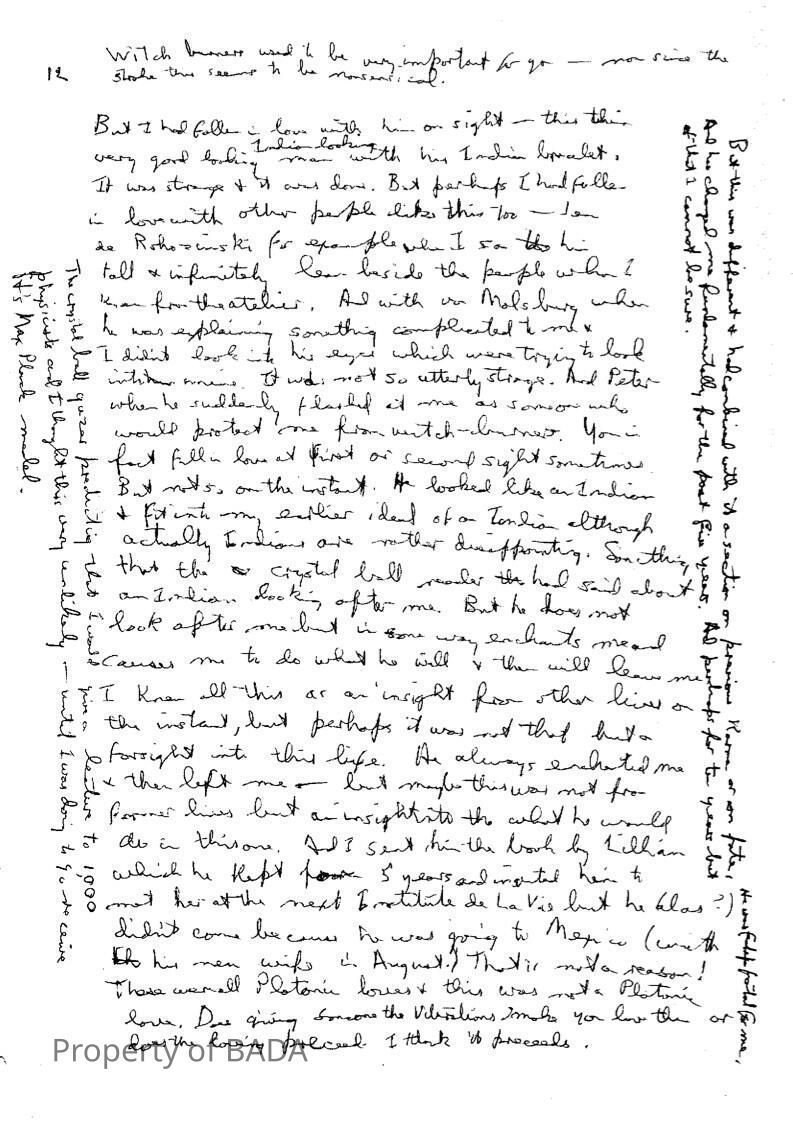 12
Witch burners used to be very important for you — now since the
stroke this seems to be nonsensical.
But I had fallen in love with him on sight — this thin
Indian looking
very good looking man with his Indian bracelet.
It was strange & it was done. But perhaps I had fallen
in love with other people like this too — Jan
de Rohozinski for example when I saw him
tall & infinitely lean beside the people whom I
knew from the atelier. And with von Molsburg when
he was explaining something complicated to me &
I didn't look into his eyes which were trying to look
into mine. It was not so utterly strange. And Peter
when he suddenly flashed at me as someone who
would protect me from witch-burners. You in
fact fall in love at first or second sight sometimes.
But not so on the instant. He looked like an Indian
& fit into my earlier ideal of an Indian although
actually Indians are rather disappointing. Something
that the crystal ball reader had said about
an Indian looking after me. But he does not
look after me but in some way enchants me and
causes me to do what he will & then will leave me
I knew all this as an insight from other lives on
the instant, but perhaps it was not that but a
forsight into this life. He always enchanted me
& then left me — but maybe this was not from
former lives but an insight into what he would
do in this one. And I sent him the book by Lillian
which he kept 5 years and invited him to
meet her at the next Institute de La Vie but he (alas?)
didn't come because he was going to Mexico (with
his new wife in August.) That is not a reason!
These were all Platonic loves & this was not a Platonic
love. Does giving someone the Vibrations make you love them or
does the loving precede I think it proceeds.
But this was different & had combined with it a section on previous Karma or on fate.
And he changed me fundamentally for the past five years. And perhaps for ten years but
of that I cannot be sure.
He was for me,
The crystal ball gazer predicting that I would give a lecture to 1,000
physicists and I thought this very unlikely — until I was going to receive
It's Max Planck medal.
Property of BADA